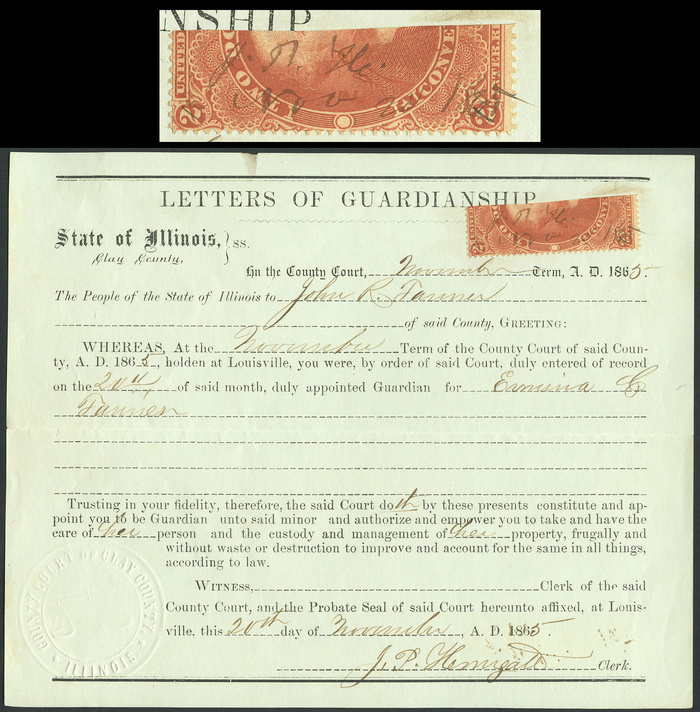 NSHIP
UNITED
2
CONVEYA
TER.RE
2
LETTERS OF GUARDIANSHIP
State of Illinois, } ss.
Clay County,
In the County Court, November Term, A. D. 1865.
The People of the State of Illinois to John R. Tanner
of said County, GREETING:
WHEREAS, At the November Term of the County Court of said Coun-
ty, A. D. 1865, holden at Louisville, you were, by order of said Court, duly entered of record
on the 20th of said month, duly appointed Guardian for C
Tanner
Trusting in your fidelity, therefore, the said Court doth by these presents constitute and ap-
point you to be Guardian unto said minor and authorize and empower you to take and have the
care of her person and the custody and management of her property, frugally and
without waste or destruction to improve and account for the same in all things,
according to law.
WITNESS, Clerk of the said
County Court, and the Probate Seal of said Court hereunto affixed, at Louis-
ville, this 20th day of November, A. D. 1865.
J. P. Clerk.
COUNTY COURT OF CLAY COUNTY
ILLINOIS